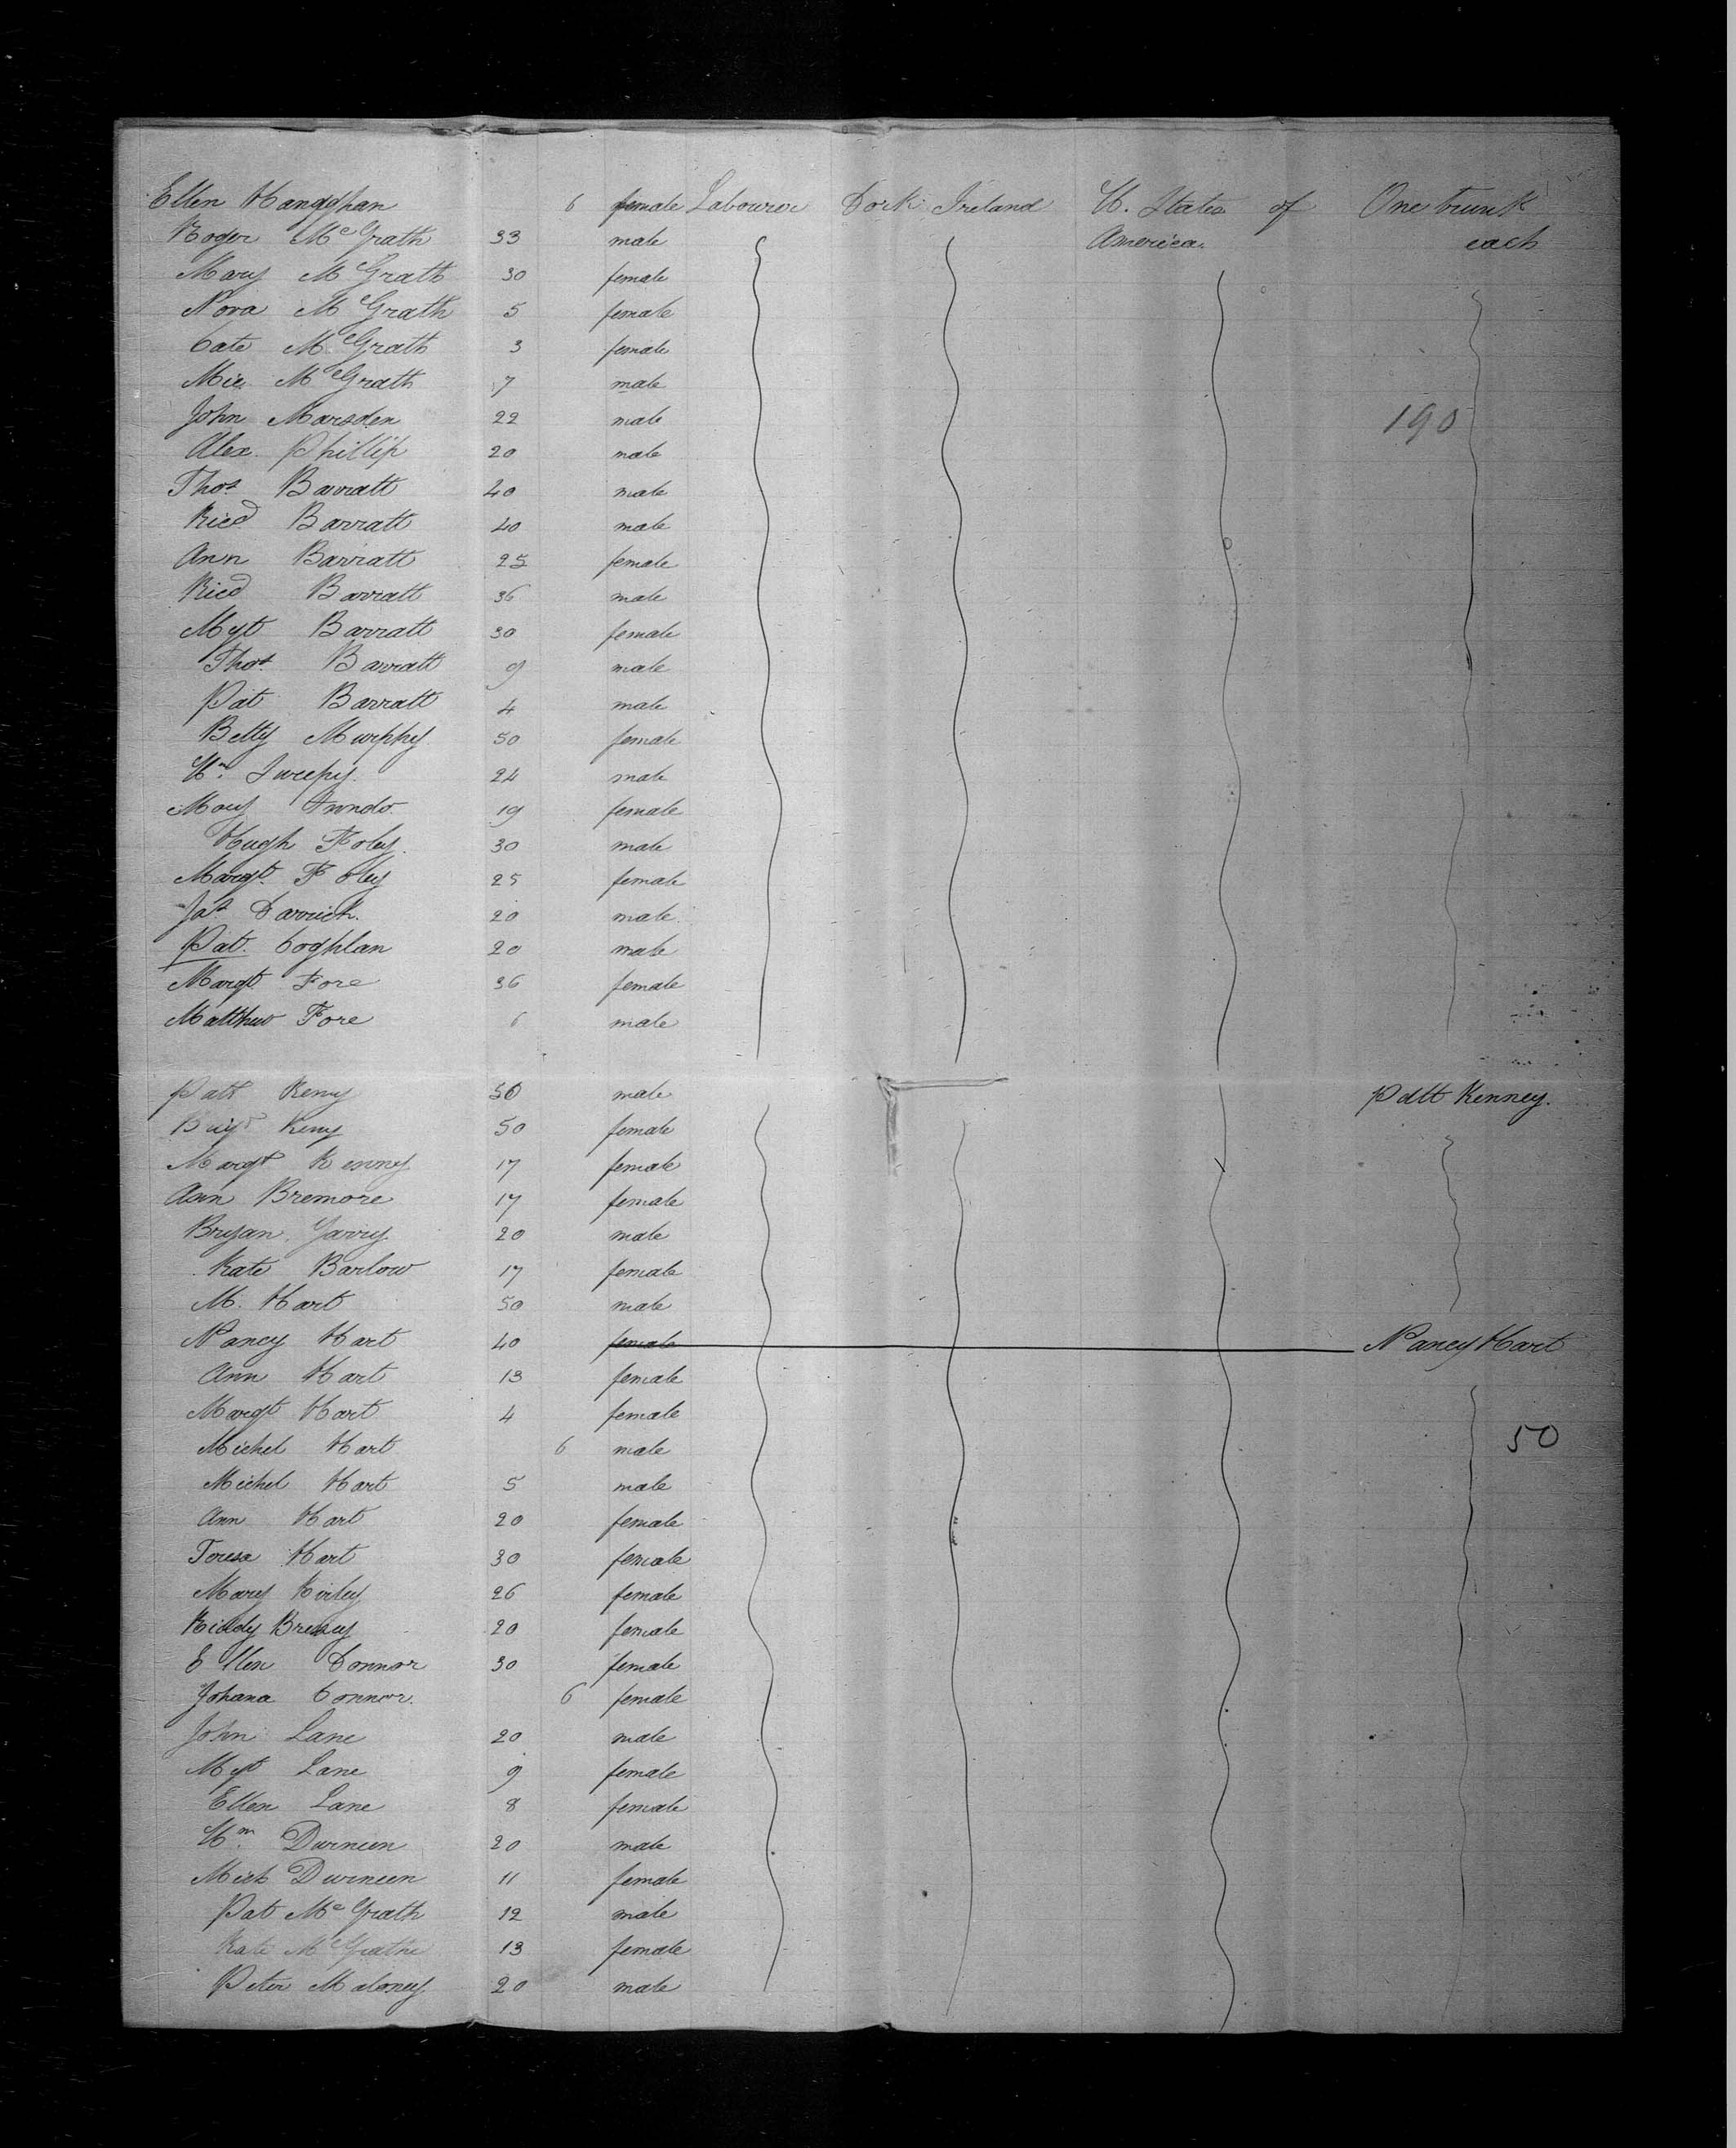 Ellen Hangghan 6 female Labourer Cork Ireland U. States of One trunk
Roger McGrath 33 male America. each
Mary McGrath 30 female
Nora McGrath 5 female
Cate McGrath 3 female
Mic. McGrath 7 male
John Marsden 22 male 190
Alex. Phillip 20 male
Thos Barratt 40 male
Ricd Barratt 40 male
Ann Barratt 25 female
Ricd Barratt 36 male
Mgt Barratt 30 female
Thos Barratt 9 male
Pat Barratt 4 male
Betty Murphy 50 female
Wm 24 male
Mary 19 female
Hugh Foley 30 male
Margt. Foley 25 female
Jas 20 male
Pat. Coghlan 20 male
Margt Fore 36 female
Matthew Fore 6 male
Patt Keny 50 male Patt Kenney.
Brigt Keny 50 female
Margt Kenny 17 female
Ann Bremore 17 female
Bryan Garry 20 male
Kate Barlow 17 female
M. Hart 50 male
Nancy Hart 40 female Nancy Hart
Ann Hart 13 female
Margt Hart 4 female
Michel Hart 6 male 50
Michel Hart 5 male
Ann Hart 20 female
Teresa Hart 30 female
Mary Kirley 26 female
Kiddy 20 female
Ellen Connor 30 female
Johana Connor. 6 female
John Lane 20 male
Mgt Lane 9 female
Ellen Lane 8 female
Wm. Durneen 20 male
Durneen 11 female
Pat McGrath 12 male
Kate McGrathe 13 female
Peter Maloney 20 male